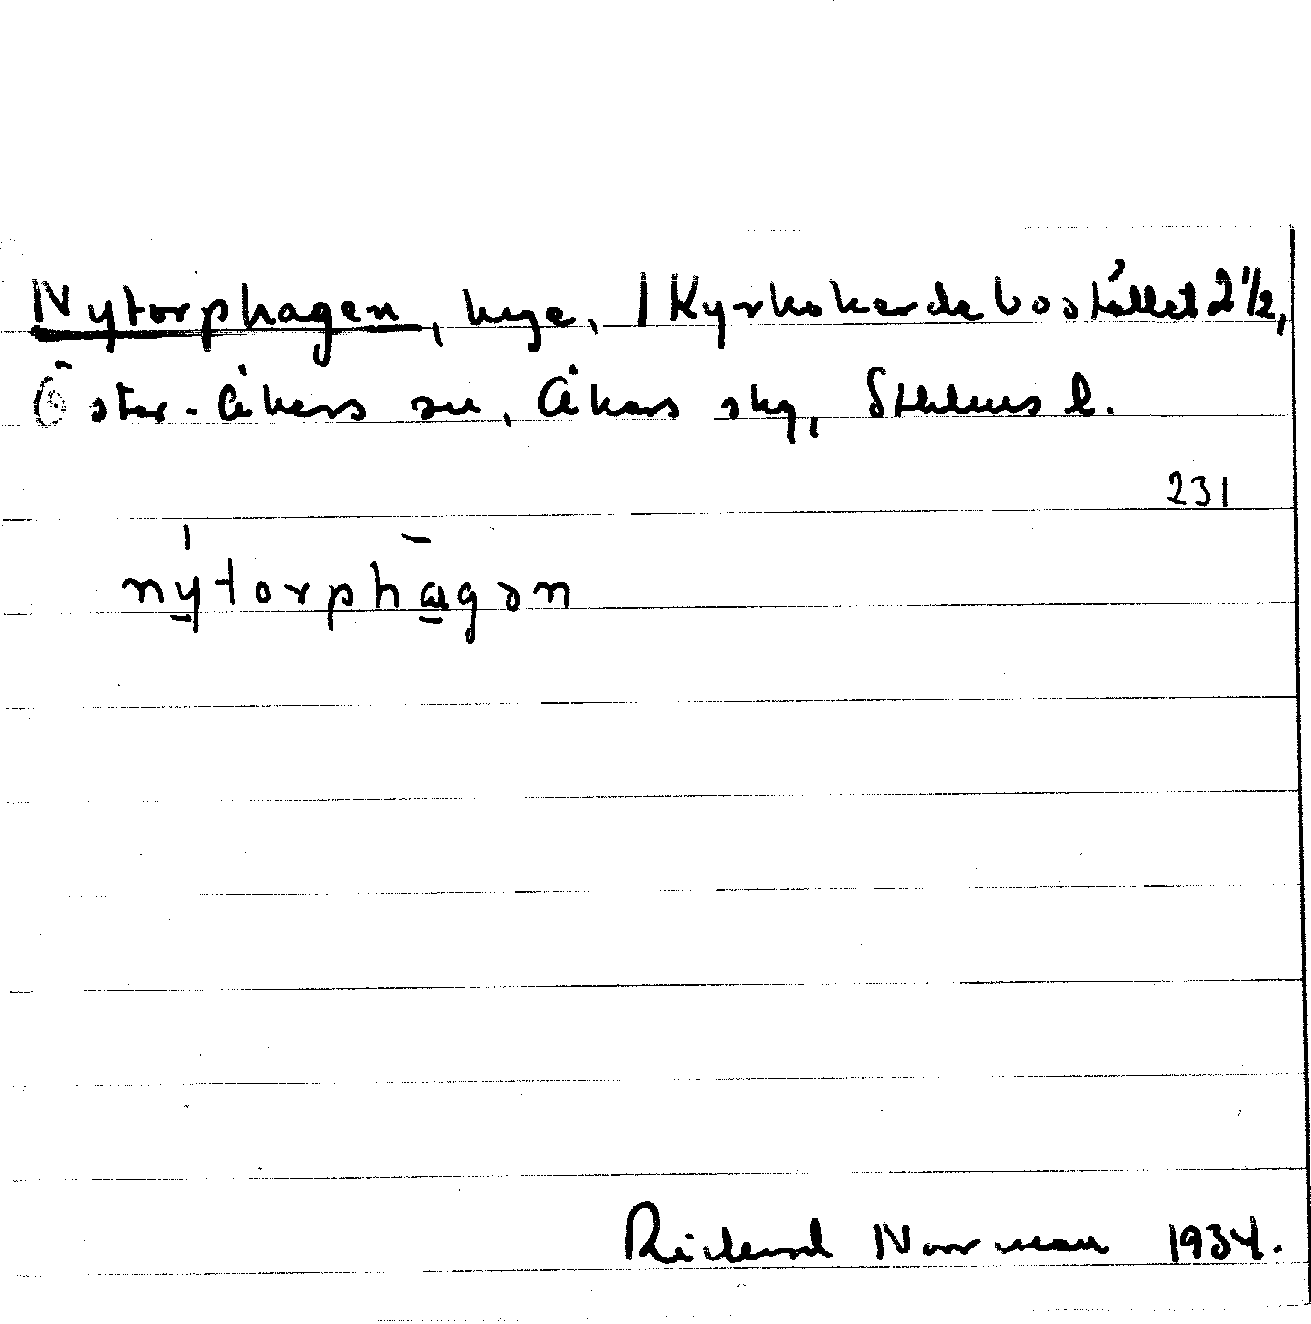 Nytorphagen, hage, 1 Kyrkoherdebostället 2 1/2,
Öster-Åkers sn, Åkers skg, Sthlms l.
231
nytorphagən
Richard Norrman 1934.